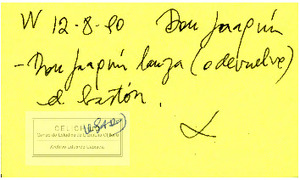 W 12-8-90 Don Joaquín
- Don Joaquín lanza (o devuelve)
el bastón.